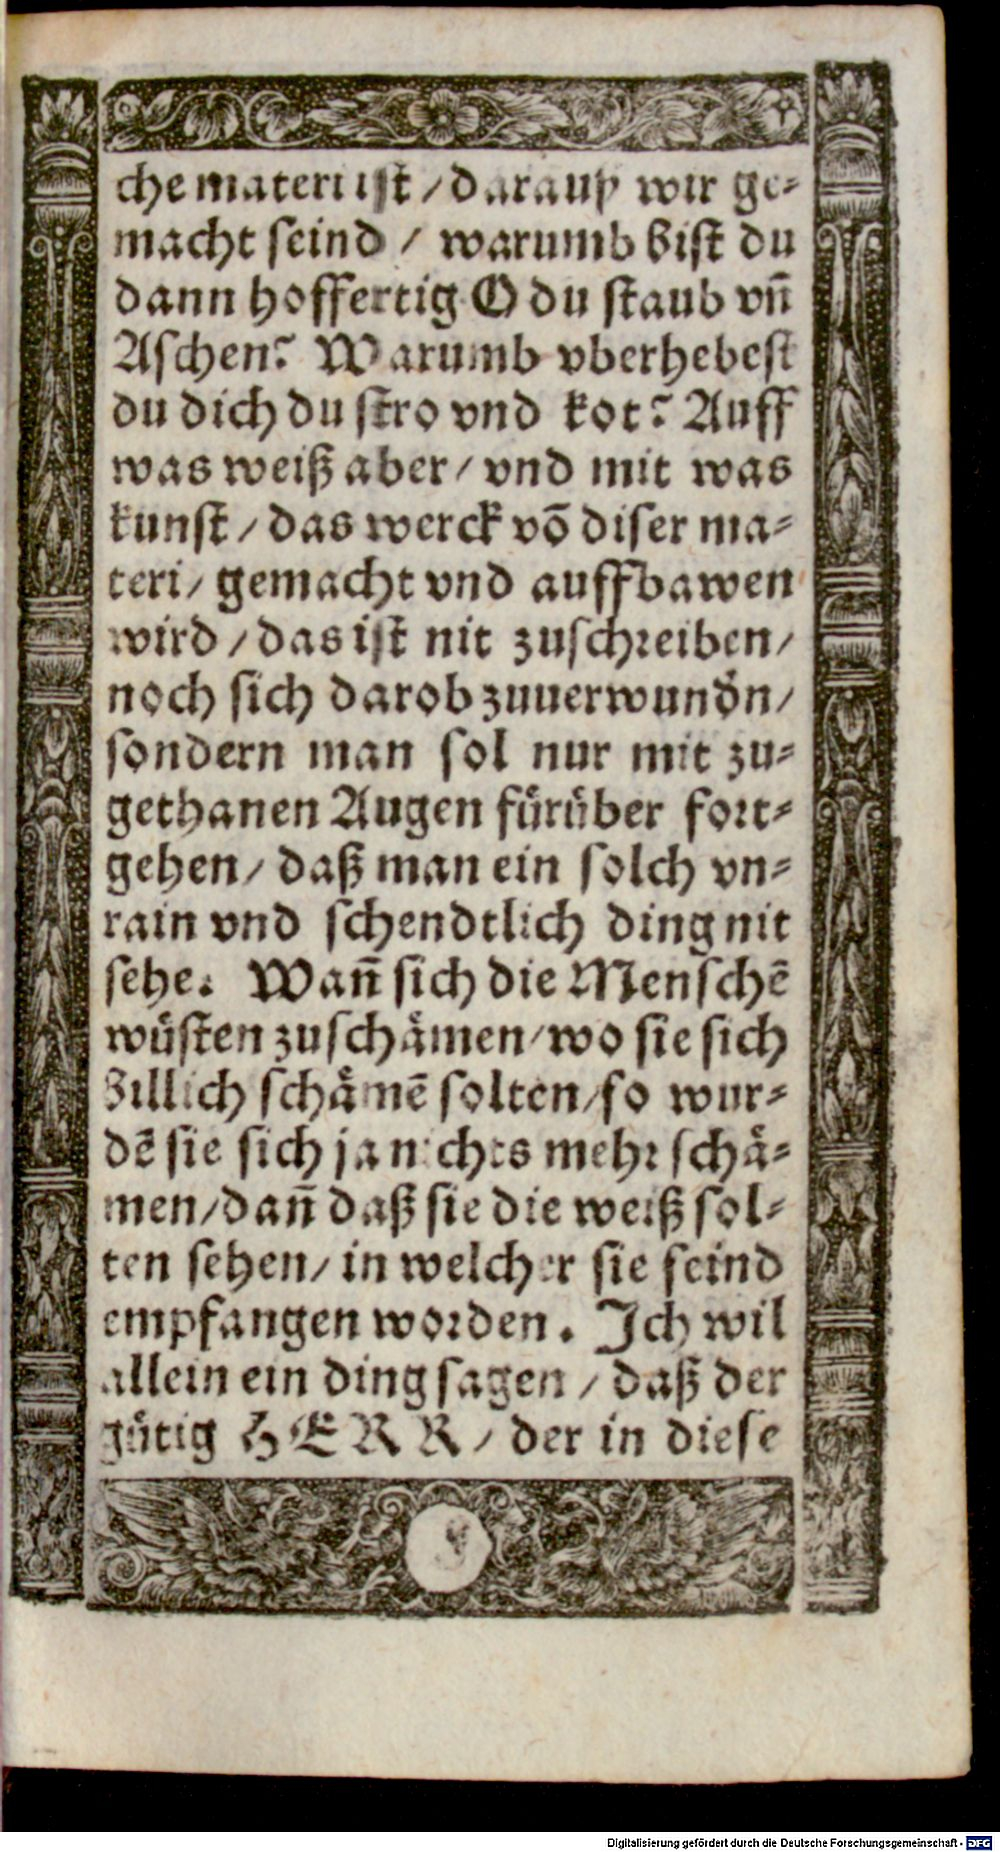 che materi ist / darauß wir ge⸗
macht seind / warumb bist du
dann hoffertig O du staub vñ
Aschen? Warumb vberhebest
du dich du stro vnd kot? Auff
was weiß aber / vnd mit was
kunst / das werck võ diser ma⸗
teri / gemacht vnd auffbawen
wird / das ist nit zuschreiben /
noch sich darob zuuerwundn̄ /
sondern man sol nur mit zu⸗
gethanen Augen fürüber fort⸗
gehen / daß man ein solch vn⸗
rain vnd schendtlich ding nit
sehe. Wañ sich die Menschẽ
wüsten zuschämen / wo sie sich
billich schämẽ solten / so wur⸗
dẽ sie sich ja nichts mehr schä⸗
men / dañ daß sie die weiß sol⸗
ten sehen / in welcher sie seind
empfangen worden. Ich wil
allein ein ding sagen / daß der
gütig HERR / der in diese
Digitalisierung gefördert durch die Deutsche Forschungsgemeinschaft - DFG